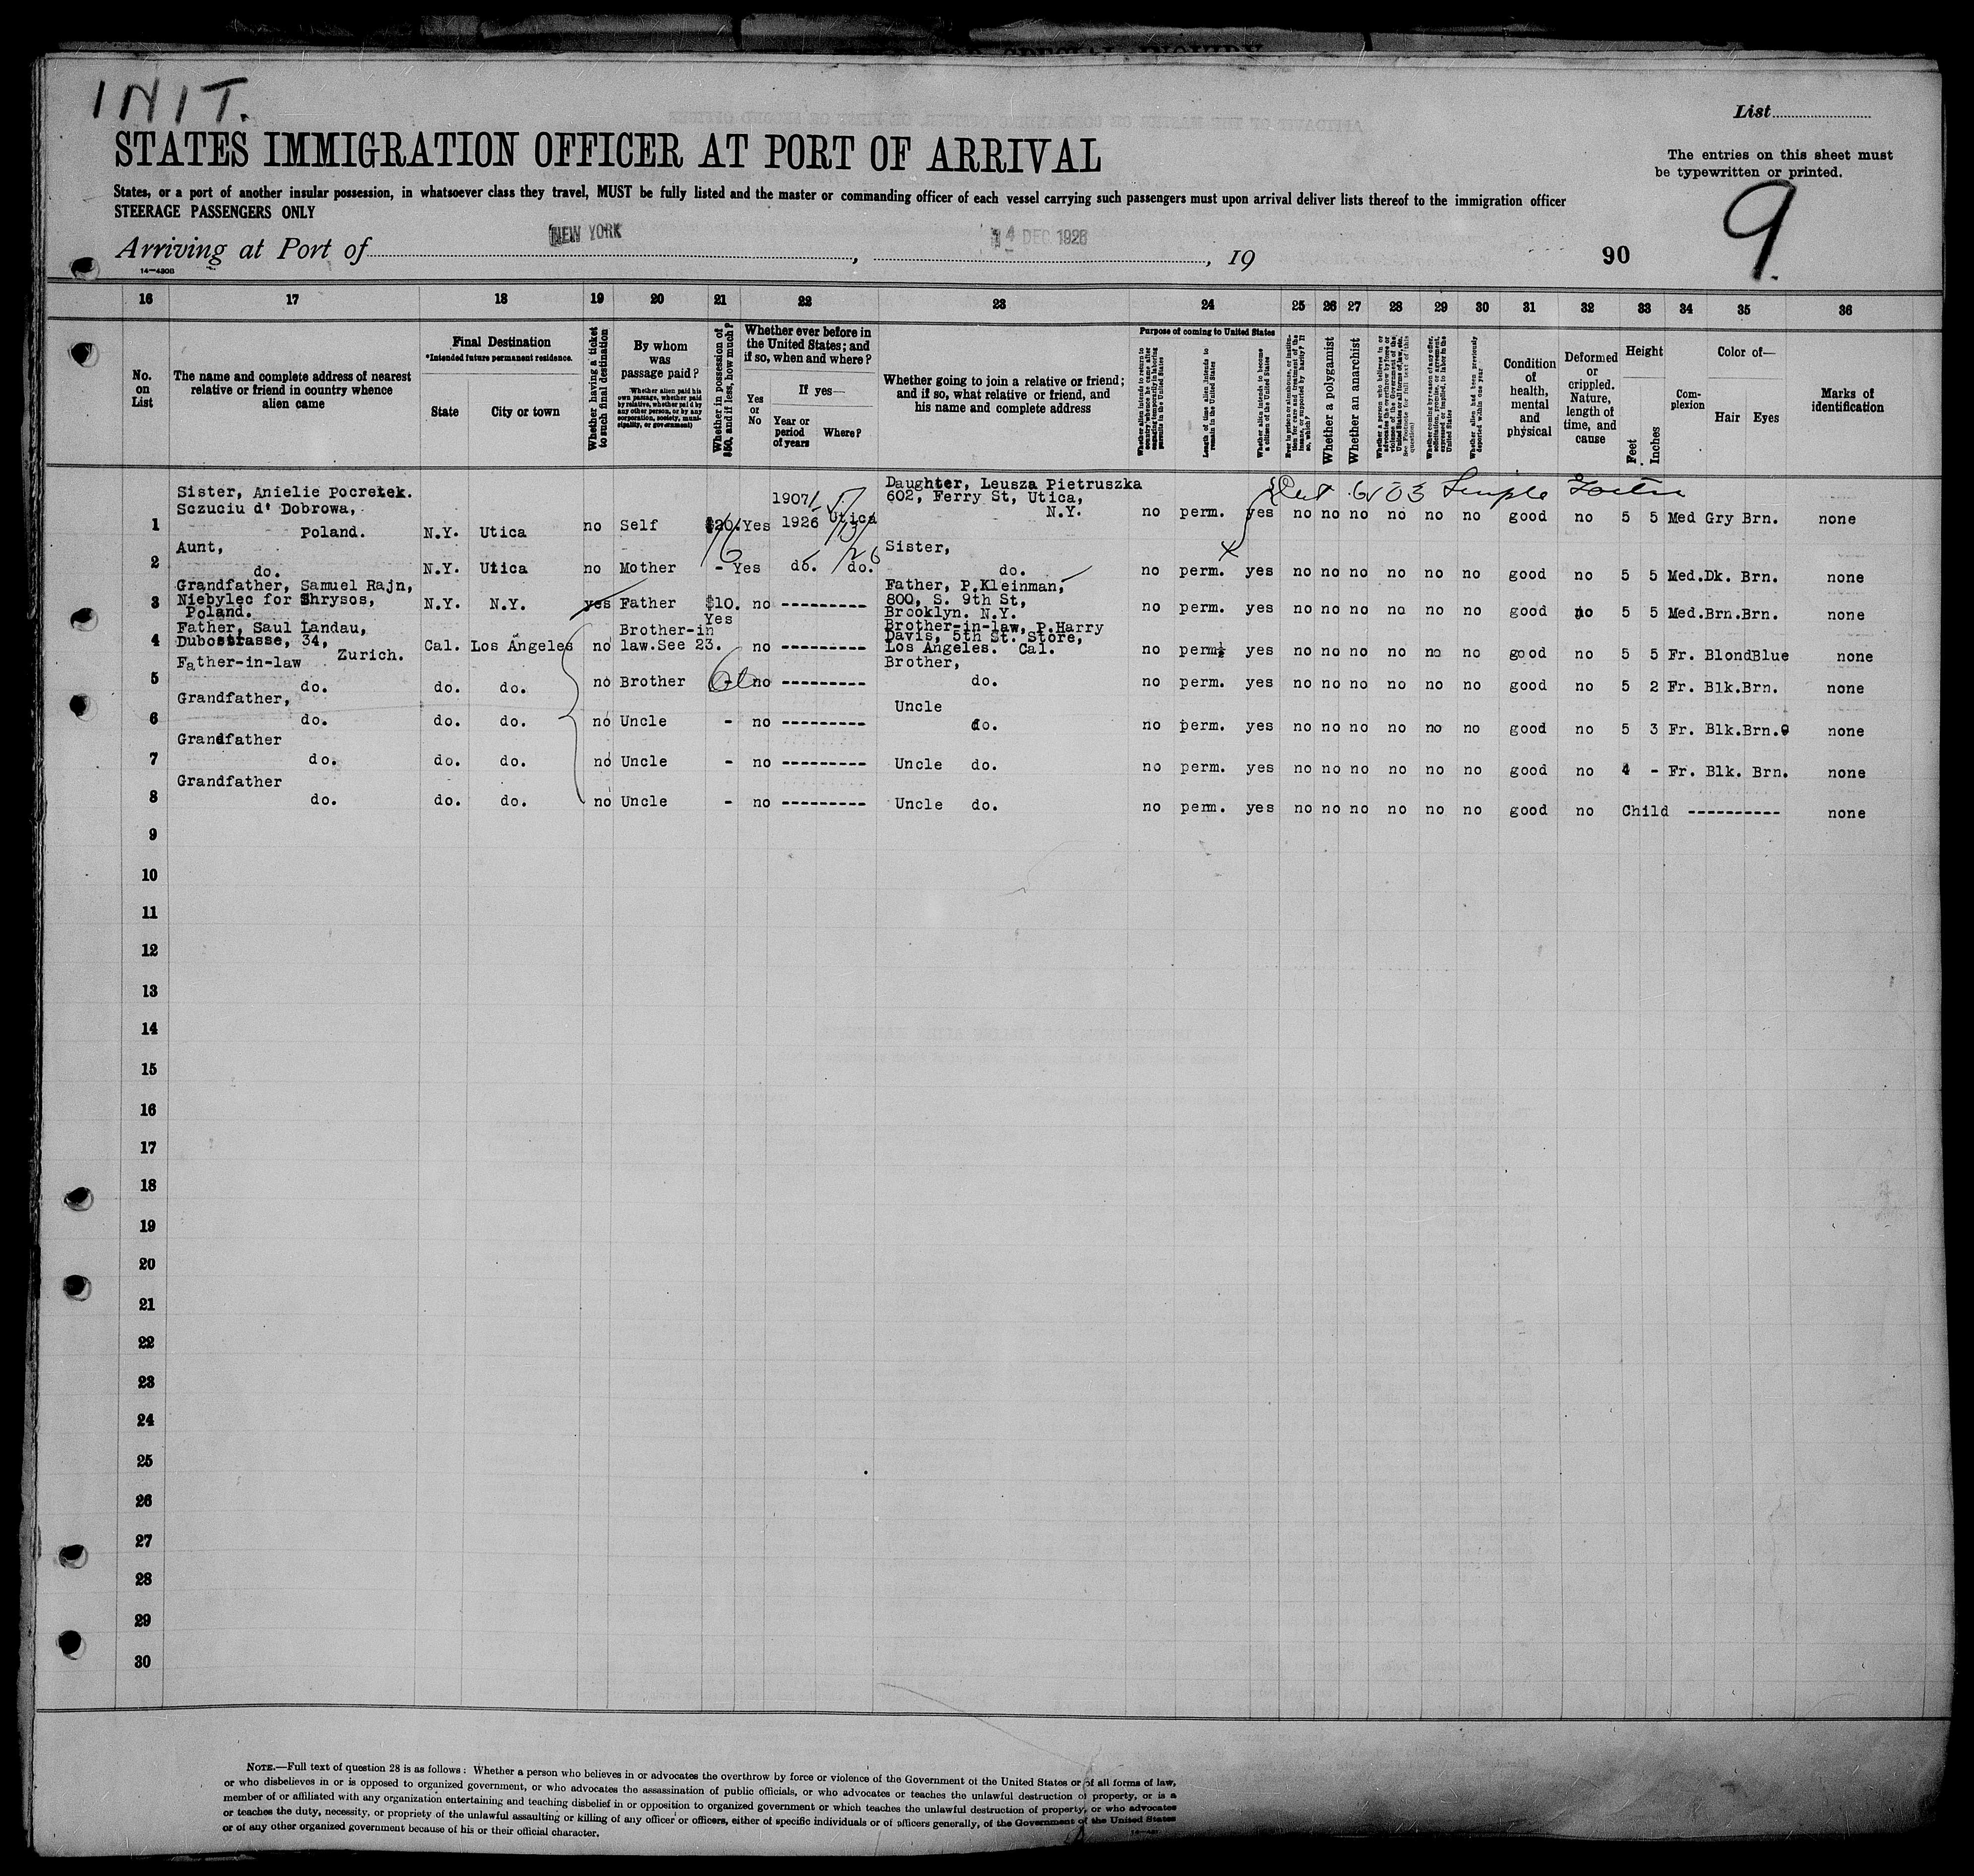 INIT.
List
STATES IMMIGRATION OFFICER AT PORT OF ARRIVAL
The entries on this sheet must
be typewritten or printed.
States, or a port of another insular possession, in whatsoever class they travel, MUST be fully listed and the master or commanding officer of each vessel carrying such passengers must upon arrival deliver lists thereof to the immigration officer
STEERAGE PASSENGERS ONLY
9
Arriving at Port of NEW YORK, 14 DEC 1926, 19 90
16 17 18 19 20 21 22 23 24 25 26 27 28 29 30 31 32 33 34 35 36
No. on List
The name and complete address of nearest relative or friend in country whence alien came
Final Destination
*Intended future permanent residence.
State
City or town
Whether having a ticket to such final destination
By whom was passage paid?
Whether alien paid his own passage, whether paid by relative, whether paid by any other person, or by any corporation, society, municipality, or government)
Whether in possession of $50, and if less, how much?
Whether ever before in the United States; and if so, when and where?
Yes or No
If yes—
Year or period of years
Where?
Whether going to join a relative or friend; and if so, what relative or friend, and his name and complete address
Purpose of coming to United States
Length of time alien intends to remain in the United States
Whether alien intends to become a citizen of the United States
Whether a polygamist
Whether an anarchist
Condition of health, mental and physical
Deformed or crippled. Nature, length of time, and cause
Height
Feet
Inches
Complexion
Color of—
Hair
Eyes
Marks of identification
1 Sister, Anielie Pocretek. Sczuciu d' Dobrowa, Poland. N.Y. Utica no Self $20. Yes 1907/ 1926 Utica Daughter, Leusza Pietruszka 602, Ferry St, Utica, N.Y. no perm. yes no no no no no no good no 5 5 Med Gry Brn. none
2 Aunt, do. N.Y. Utica no Mother - Yes do. do. Sister, do. no perm. yes no no no no no no good no 5 5 Med. Dk. Brn. none
3 Grandfather, Samuel Rajn, Niebylec for Shrysos, Poland. N.Y. N.Y. yes Father $10. no --------- Father, P.Kleinman, 800, S. 9th St, Brooklyn. N.Y. no perm. yes no no no no no no good no 5 5 Med. Brn. Brn. none
4 Father, Saul Landau, Dubostrasse, 34, Zurich. Cal. Los Angeles no Brother-in law.See 23. Yes no --------- Brother-in-law, P.Harry Davis, 5th St. Store, Los Angeles. Cal. no perm. yes no no no no no no good no 5 5 Fr. Blond Blue none
5 Father-in-law do. do. do. no Brother - no --------- Brother, do. no perm. yes no no no no no no good no 5 2 Fr. Blk. Brn. none
6 Grandfather, do. do. do. no Uncle - no --------- Uncle do. no perm. yes no no no no no no good no 5 3 Fr. Blk. Brn. none
7 Grandfather do. do. do. no Uncle - no --------- Uncle do. no perm. yes no no no no no no good no 4 - Fr. Blk. Brn. none
8 Grandfather do. do. do. no Uncle - no --------- Uncle do. no perm. yes no no no no no no good no Child ---------- none
9
10
11
12
13
14
15
16
17
18
19
20
21
22
23
24
25
26
27
28
29
30
NOTE.—Full text of question 28 is as follows: Whether a person who believes in or advocates the overthrow by force or violence of the Government of the United States or of all forms of law,
or who disbelieves in or is opposed to organized government, or who advocates the assassination of public officials, or who advocates or teaches the unlawful destruction of property, or is a
member of or affiliated with any organization entertaining and teaching disbelief in or opposition to organized government or which teaches the unlawful destruction of property, or who advocates
or teaches the duty, necessity, or propriety of the unlawful assaulting or killing of any officer or officers, either of specific individuals or of officers generally, of the Government of the United States
or of any other organized government because of his or their official character.